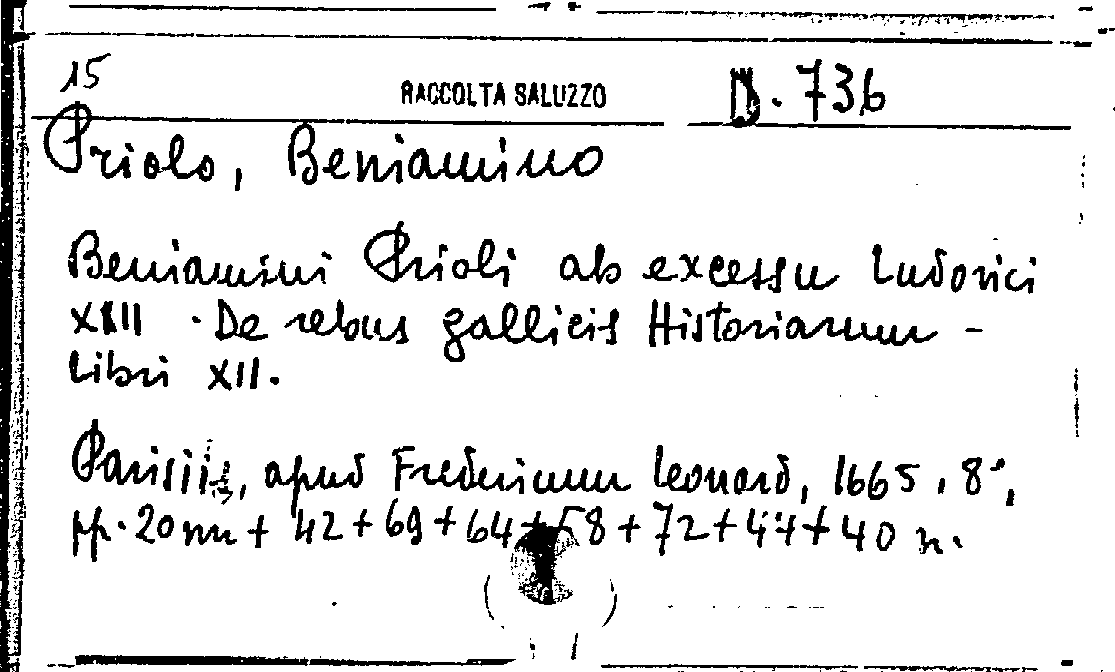 15 RACCOLTA SALUZZO D. 736
Priolo, Beniamino
Beniamini Prioli ab excessu Ludovici
XIII. De rebus gallicis Historiarum -
Libri XII.
Parisiis, apud Fredericum Leonard, 1665, 8°,
pp. 20 nn + 42 + 69 + 64 + 58 + 72 + 47 + 40 n.